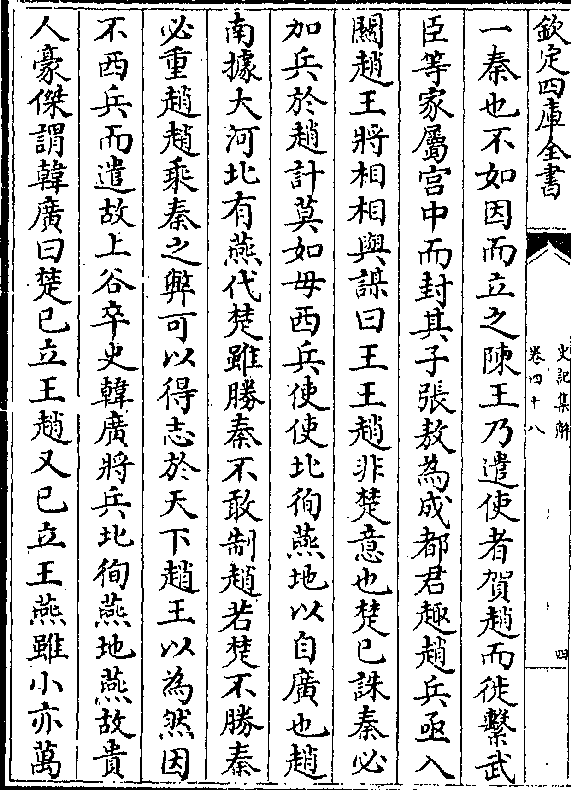 欽定四庫全書
史記集解
卷四十八
四
一秦也不如因而立之陳王乃遣使者賀趙而徙繫武
臣等家屬宫中而封其子張敖為成都君趣趙兵亟入
關趙王將相相與謀曰王王趙非楚意也楚已誅秦必
加兵於趙計莫如毋西兵使使北徇燕地以自廣也趙
南據大河北有燕代楚雖勝秦不敢制趙若楚不勝秦
必重趙趙乘秦之弊可以得志於天下趙王以為然因
不西兵而遣故上谷卒史韓廣將兵北徇燕地燕故貴
人豪傑謂韓廣曰楚已立王趙又已立王燕雖小亦萬